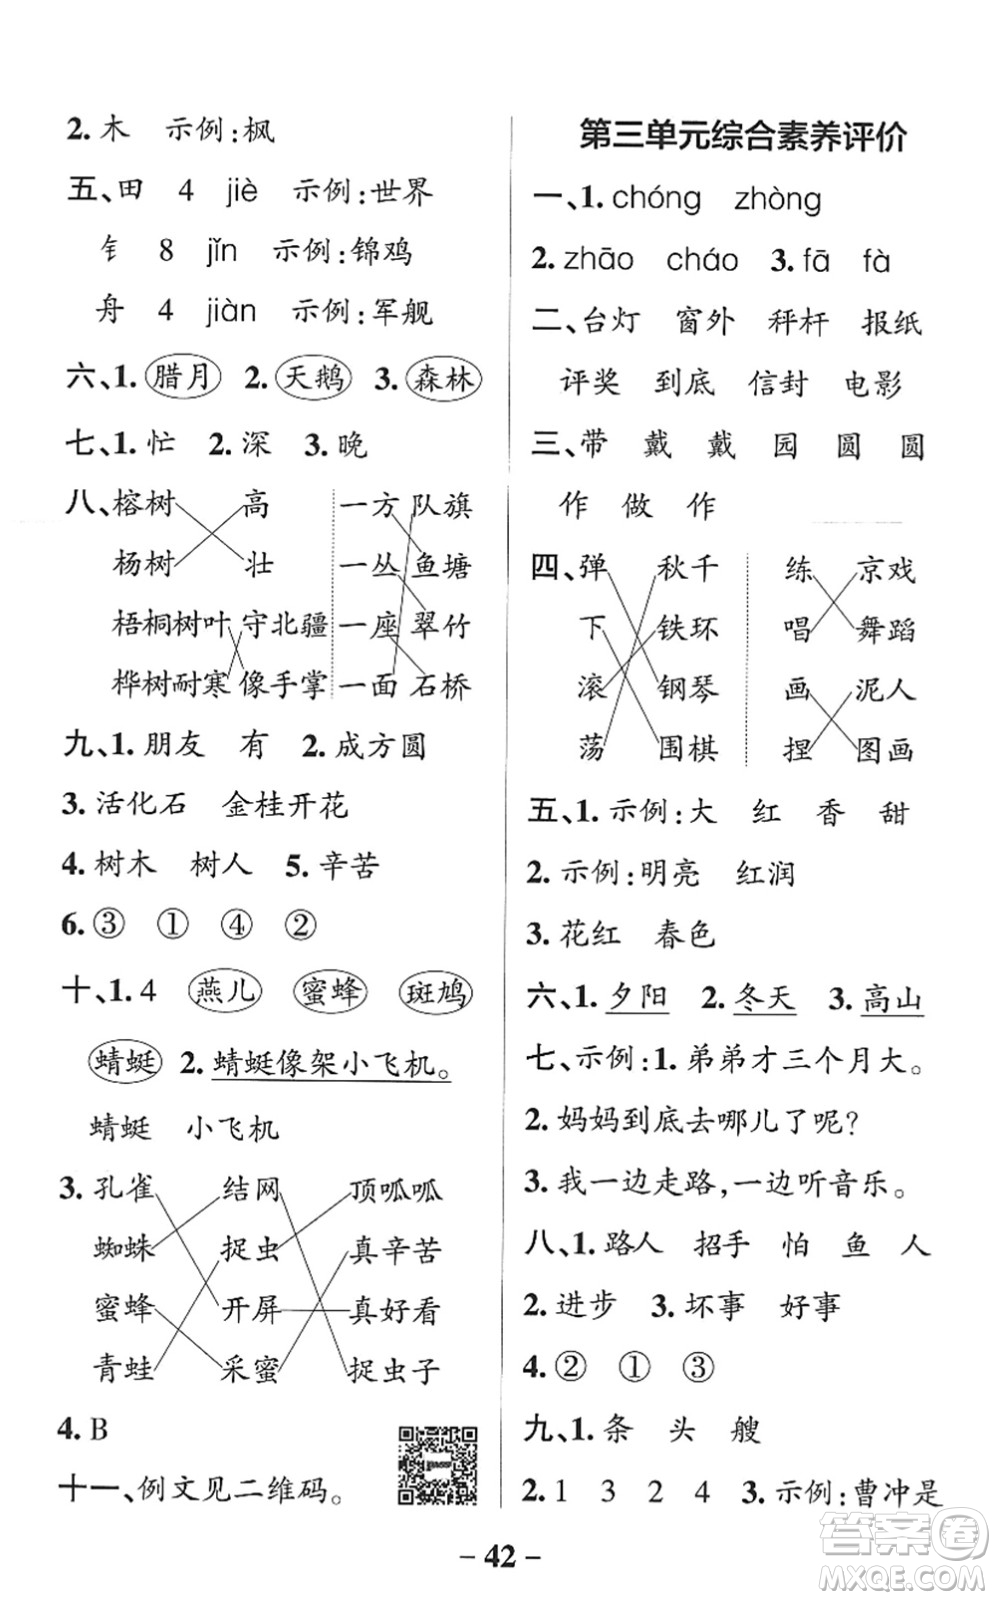 2.木 示例:枫
五、田 4 jiè 示例:世界
钅 8 jǐn 示例:锦鸡
舟 4 jiàn 示例:军舰
六、1.腊月 2.天鹅 3.森林
七、1.忙 2.深 3.晚
八、榕树 高 一方 队旗
杨树 壮 一丛 鱼塘
梧桐树叶 守北疆 一座 翠竹
桦树耐寒 像手掌 一面 石桥
九、1.朋友 有 2.成方圆
3.活化石 金桂开花
4.树木 树人 5.辛苦
6.③ ① ④ ②
十、1.4 燕儿 蜜蜂 斑鸠
蜻蜓 2.蜻蜓像架小飞机。
蜻蜓 小飞机
3.孔雀 结网 顶呱呱
蜘蛛 捉虫 真辛苦
蜜蜂 开屏 真好看
青蛙 采蜜 捉虫子
4.B
十一、例文见二维码。
第三单元综合素养评价
一、1.chóng zhòng
2.zhāo cháo 3.fā fà
二、台灯 窗外 秤杆 报纸
评奖 到底 信封 电影
三、带 戴 戴 园 圆 圆
作 做 作
四、弹 秋千 练 京戏
下 铁环 唱 舞蹈
滚 钢琴 画 泥人
荡 围棋 捏 图画
五、1.示例:大 红 香 甜
2.示例:明亮 红润
3.花红 春色
六、1.夕阳 2.冬天 3.高山
七、示例:1.弟弟才三个月大。
2.妈妈到底去哪儿了呢?
3.我一边走路,一边听音乐。
八、1.路人 招手 怕 鱼 人
2.进步 3.坏事 好事
4.② ① ③
九、1.条 头 艘
2.1 3 2 4 3.示例:曹冲是
- 42 -
答案卷
MXQE.COM